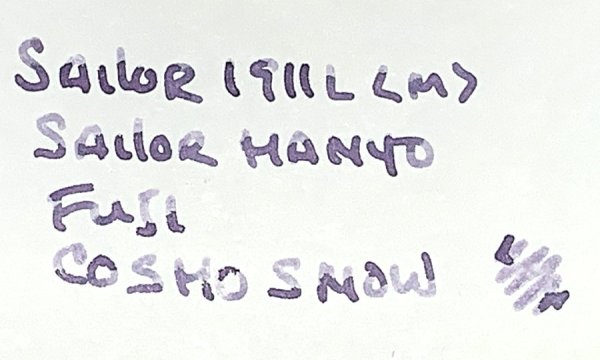 SAILOR 1911L <M>
SAILOR MANYO
FUJI
COSMO SNOW